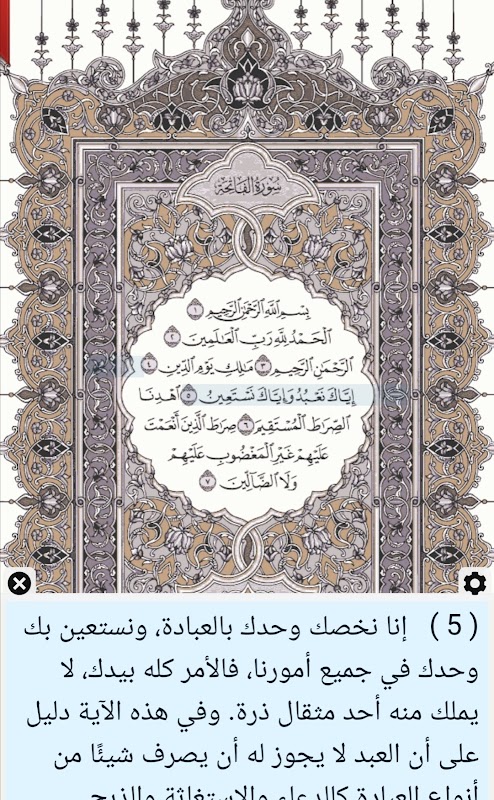 سُورَةُ الفَاتِحَةِ
بِسْمِ اللَّهِ الرَّحْمَٰنِ الرَّحِيمِ ١
الْحَمْدُ لِلَّهِ رَبِّ الْعَالَمِينَ ٢
الرَّحْمَٰنِ الرَّحِيمِ ٣ مَالِكِ يَوْمِ الدِّينِ ٤
إِيَّاكَ نَعْبُدُ وَإِيَّاكَ نَسْتَعِينُ ٥ اهْدِنَا
الصِّرَاطَ الْمُسْتَقِيمَ ٦ صِرَاطَ الَّذِينَ أَنْعَمْتَ
عَلَيْهِمْ غَيْرِ الْمَغْضُوبِ عَلَيْهِمْ
وَلَا الضَّالِّينَ ٧
( 5 ) إنا نخصك وحدك بالعبادة، ونستعين بك
وحدك في جميع أمورنا، فالأمر كله بيدك، لا
يملك منه أحد مثقال ذرة. وفي هذه الآية دليل
على أن العبد لا يجوز له أن يصرف شيئًا من
أنواع العبادة كالدعاء والاستغاثة والذبح